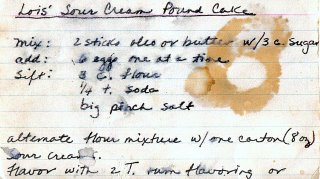 Lois' Sour Cream Pound Cake
mix: 2 sticks oleo or butter w/3 c. sugar
add: 6 eggs one at a time
sift: 3 c. flour
1/4 t. soda
big pinch salt
alternate flour mixture w/ one carton (8 oz)
sour cream.
flavor with 2 T. rum flavoring or